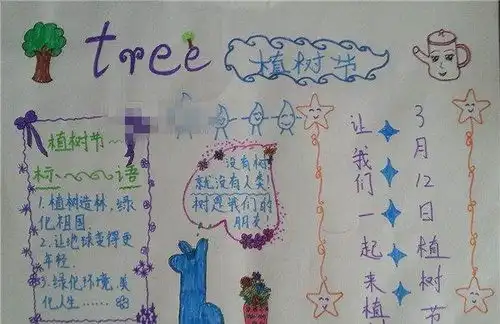 tree
植树节
植树节
标 语
1.植树造林,绿
化祖国
2.让地球变得更
年轻.
3.绿化环境,美
化人生……
没有树
就没有人类,
树是我们的
朋友
3月12日植树节
让我们一起来植